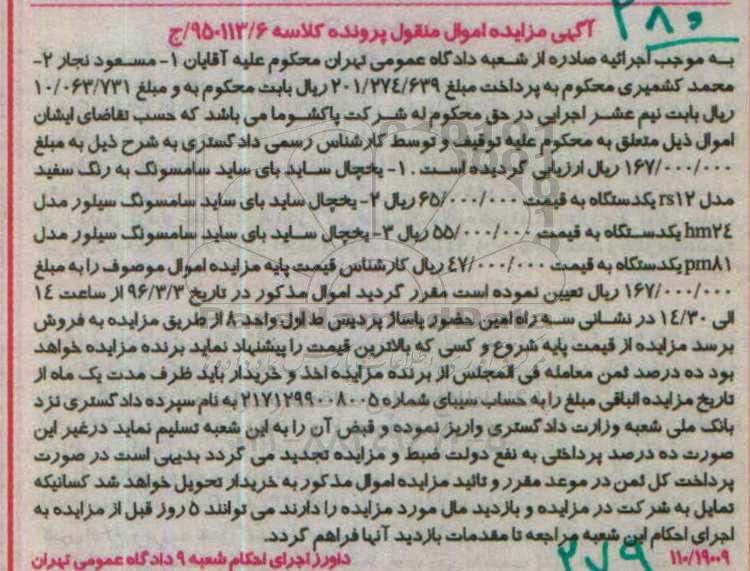 ۲۸۵
آگهی مزایده اموال منقول پرونده کلاسه ۹۵۰۱۱۳/۶/ج
به موجب اجرائیه صادره از شعبه دادگاه عمومی تهران محکوم علیه آقایان ۱- مسعود نجار ۲-
محمد کشمیری محکوم به پرداخت مبلغ ۲۰۱/۲۷۴/۶۳۹ ریال بابت محکوم به و مبلغ ۱۰/۰۶۳/۷۳۱
ریال بابت نیم عشر اجرایی در حق محکوم له شرکت پاکشوما می باشد که حسب تقاضای ایشان
اموال ذیل متعلق به محکوم علیه توقیف و توسط کارشناس رسمی دادگستری به شرح ذیل به مبلغ
۱۶۷/۰۰۰/۰۰۰ ریال ارزیابی گردیده است. ۱- یخچال ساید بای ساید سامسونگ به رنگ سفید
مدل rs۱۲ یکدستگاه به قیمت ۶۵/۰۰۰/۰۰۰ ریال ۲- یخچال ساید بای ساید سامسونگ سیلور مدل
hm۲۴ یکدستگاه به قیمت ۵۵/۰۰۰/۰۰۰ ریال ۳- یخچال ساید بای ساید سامسونگ سیلور مدل
pm۸۱ یکدستگاه به قیمت ۴۷/۰۰۰/۰۰۰ ریال کارشناس قیمت پایه مزایده اموال موصوف را به مبلغ
۱۶۷/۰۰۰/۰۰۰ ریال تعیین نموده است مقرر گردید اموال مذکور در تاریخ ۹۶/۳/۳ از ساعت ۱۴
الی ۱۴/۳۰ در نشانی سه راه امین حضور پاساژ پردیس ط اول واحد ۸ از طریق مزایده به فروش
برسد مزایده از قیمت پایه شروع و کسی که بالاترین قیمت را پیشنهاد نماید برنده مزایده خواهد
بود ده درصد ثمن معامله فی المجلس از برنده مزایده اخذ و خریدار باید ظرف مدت یک ماه از
تاریخ مزایده الباقی مبلغ را به حساب سیبای شماره ۲۱۷۱۲۹۹۰۰۸۰۰۵ به نام سپرده دادگستری نزد
بانک ملی شعبه وزارت دادگستری واریز نموده و قبض آن را به این شعبه تسلیم نماید درغیر این
صورت ده درصد پرداختی به نفع دولت ضبط و مزایده تجدید می گردد بدیهی است در صورت
پرداخت کل ثمن در موعد مقرر و تائید مزایده اموال مذکور به خریدار تحویل خواهد شد کسانیکه
تمایل به شرکت در مزایده و بازدید مال مورد مزایده را دارند می توانند ۵ روز قبل از مزایده به
اجرای احکام این شعبه مراجعه تا مقدمات بازدید آنها فراهم گردد.
۱۱۰/۱۹۰۰۹ ۲۷۹ داورز اجرای احکام شعبه ۹ دادگاه عمومی تهران